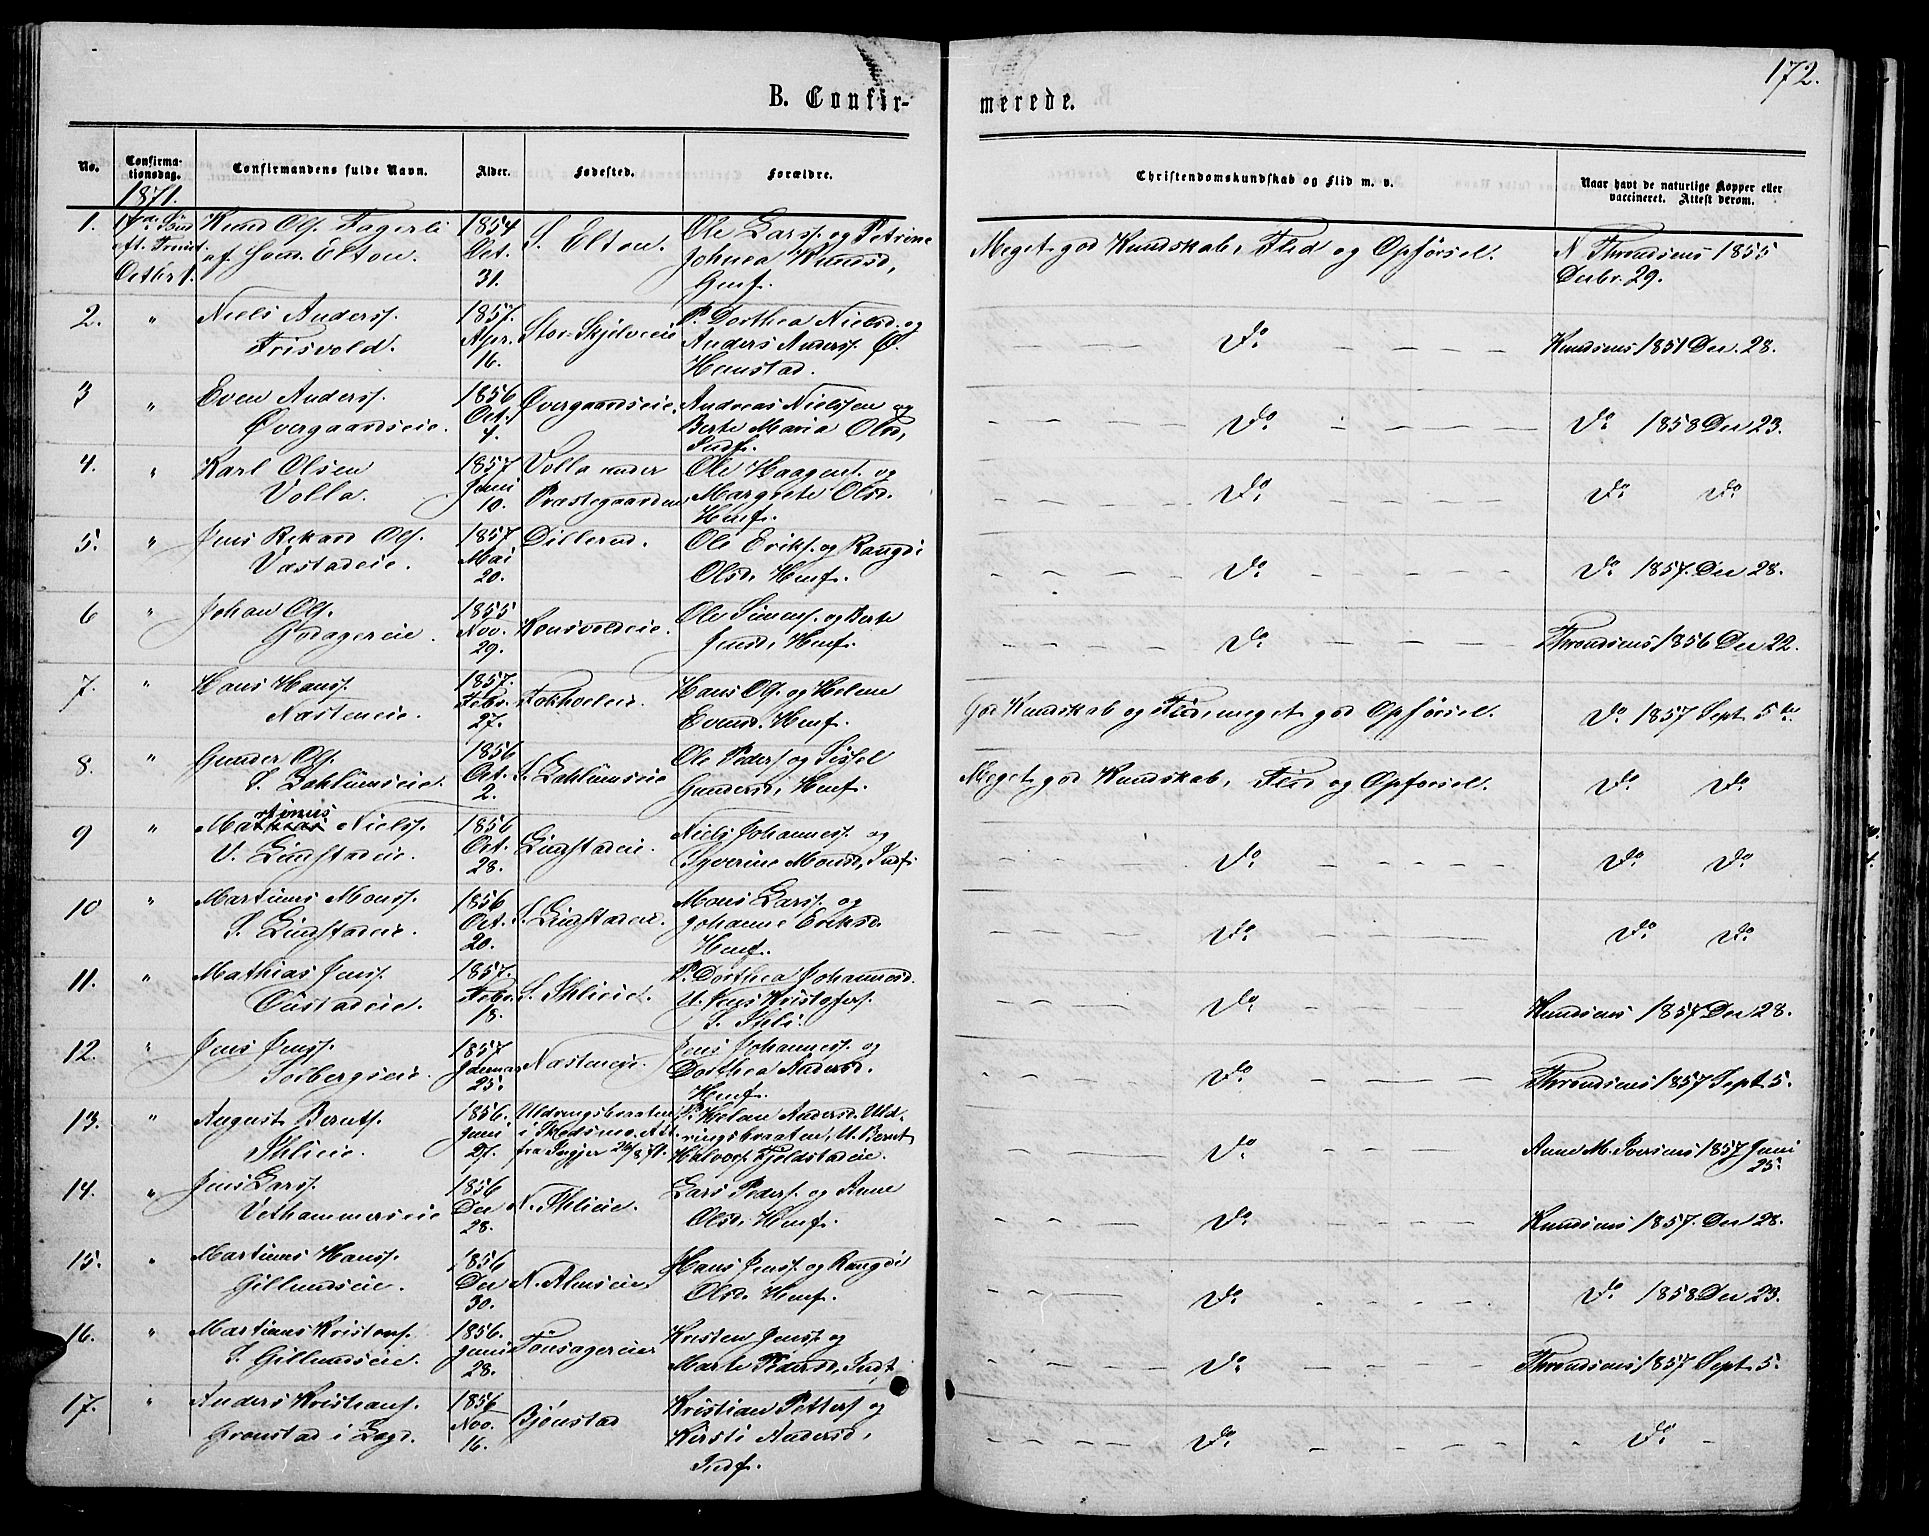 172.
B. Confir-
merede.
No.
Confirma-
tionsdag.
Confirmandens fulde Navn.
Alder.
Fødested.
Forældre.
Christendomskundskab og Flid m. v.
Naar havt de naturlige Kopper eller
vaccineret. Attest derom.
1871.
1. 17de Sönd
eft. Trinit.
Octbr 1.
Knud Ols. Fagerli
af Som. Elton.
1854
Oct.
31.
S. Elton.
Ole Larss. og Petrine
Johnea Knudsd,
Gmf.
Meget god Kundskab, Flid og Opførsel.
N. Throndsens 1855
Decbr. 29.
2. " Niels Anderss.
Frisvold.
1857.
Apr.
16.
Stor-Skjelveeie
P. Dorthea Nielsd. og
Anders Anderss. Ø.
Hemstad.
Do.
Knudsens 1851 Dec. 28.
3 " Even Anderss.
Øvergaardseie.
1856
Oct.
4.
Øvergaardseie.
Andreas Nielssen og
Berte Maria Olsd,
Indf.
Do.
Do. 1858 Dec 23.
4. " Karl Olsen
Volla.
1857
Juni
10.
Volla under
Præstegaarden
Ole Haagens. og
Margrete Olsd.
Hmf.
Do.
Do. Do
5. " Jens Rikard Ols.
Væstadeie.
1857
Mai
20.
Dillerud.
Ole Eriks. og Rangdi
Olsd. Hmf.
Do.
Do. 1857. Dec 28.
6 " Johan Ols.
Hodagereie.
1855
Nov.
29.
Konsvoldeie.
Ole Simens. og Berte
Jensd, Hmf.
Do.
Throndsens 1856 Dec 22.
7. " Hans Hanss.
Næsteneie.
1857.
Febr.
27.
Fokholeie.
Hans Ols. og Helene
Evensd. Hmf.
God Kundskab og Flid, meget god Opførsel.
Do. 1857 Sept. 5te.
8. " Gunder Ols.
S. Laklumseie.
1856
Oct.
2.
S. Laklumseie
Ole Peders. og Sissel
Gundersd, Hmf.
Meget god Kundskab, Flid og Opførsel.
Do Do
9 " Martinus Nielss.
V. Lindstadeie.
1856
Oct.
28.
Lindstadeie.
Niels Johanness. og
Syverine Monsd, Indf.
Do.
Do. Do
10 " Martinus Monss.
S. Lindstadeie.
1856
Oct.
20.
S. Lindstadeie.
Mons Larss. og
Johanne Eriksd.
Hmf.
Do.
Do. Do.
11. " Mathias Jenss.
Oustadeie.
1857.
Febr.
18.
S. Thlieie.
P. Dorthea Johannesd.
U. Jens Kristofers.
S. Thli.
Do.
Knudsens 1857 Dec 28.
12. " Jens Jenss.
Solbergseie.
1857
Januar
25.
Næsteneie.
Jens Johanness. og
Dorthea Andersd.
Hmf.
Do.
Throndsens 1857 Sept. 5.
13. " August Bernts.
Thlieie.
1856.
Juni
27.
Uldringsbraaten
i Skedsmo. Att.
fra Sogpr 26/8 71.
P. Helene Andersd. Uld-
ringsbraaten, U. Bernt
Halvors. Fjeldstadeie.
Do.
Anne M. Iversens 1857 Juni
25.
14. " Jens Larss.
Vethammerseie
1856
Dec
28.
N. Thlieie.
Lars Peders. og Anne
Olsd. Hmf.
Do.
Knudsens 1857. Dec 28.
15. " Martinus Hanss.
Gillundseie.
1856
Dec
30.
N. Almseie
Hans Jenss. og Rangdi
Olsd. Hmf.
Do.
Do. 1858 Dec 23.
16. " Martinus Kristens.
S. Gillundseie.
1856.
Juni
28.
Tönsagereie
Kristen Jenss. og
Marte Pedersd, Indf.
Do.
Throndsens 1857 Sept. 5.
17. " Anders Kristians.
Grönstad i Sogd.
1856
Nov.
16.
Bjönstad
Kristian Petters. og
Kirsti Andersd,
Indf.
Do.
Do.